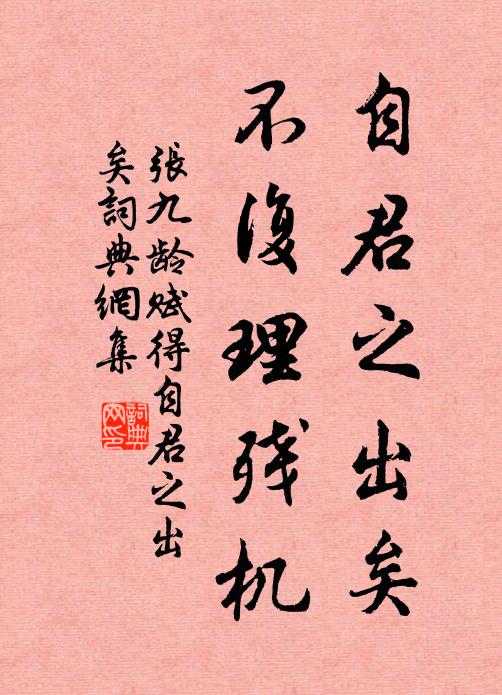 自君之出矣
不復理残机
張九龄赋得自君之出
矣詞典網集
詞典
网印